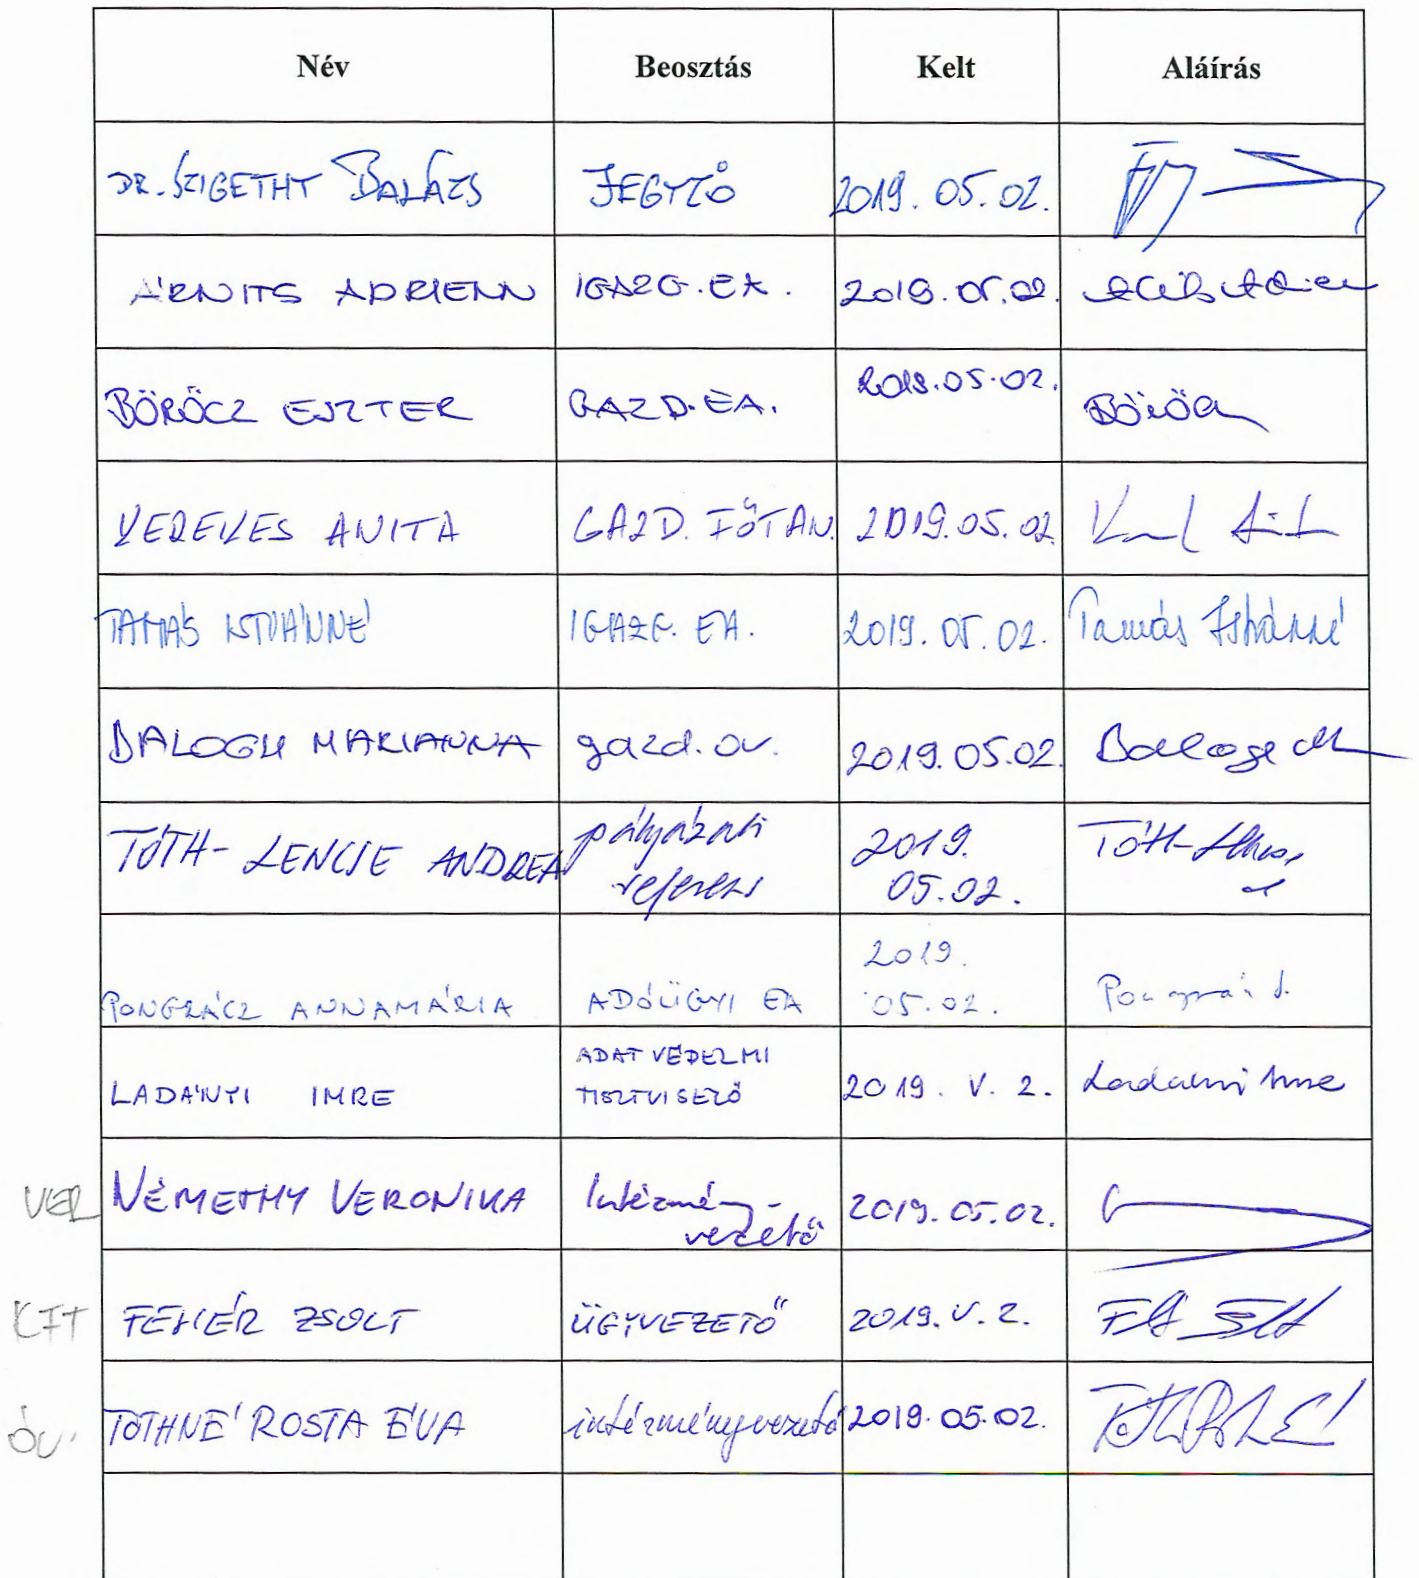 Név Beosztás Kelt Aláírás
DR. SZIGETHY BALÁZS JEGYZŐ 2019. 05. 02.
ÁRNITS ADRIENN IGAZG. EA. 2019. 05. 02.
BÖRÖCZ ESZTER GAZD. EA. 2019. 05. 02. Böröcz
KEREKES ANITA GAZD. FŐTAN. 2019. 05. 02
TAMÁS ISTVÁNNÉ IGAZG. EA. 2019. 05. 02. Tamás Istvánné
BALOGH MARIANNA gazd. ov. 2019. 05. 02. Balogh M
TÓTH-LENCSE ANDREA pályázati 2019. Tóth-Lencse
referens 05. 02.
2019.
PONGRÁCZ ANNAMÁRIA ADÓÜGYI EA 05. 02.
ADATVÉDELMI
LADÁNYI IMRE TISZTVISELŐ 2019. V. 2. Ladányi Imre
VER NÉMETHY VERONIKA Intézmény-
vezető 2019. 05. 02.
KFT FEHÉR ZSOLT ÜGYVEZETŐ 2019. V. 2.
ÓV. TÓTHNÉ ROSTA ÉVA intézményvezető 2019. 05. 02.